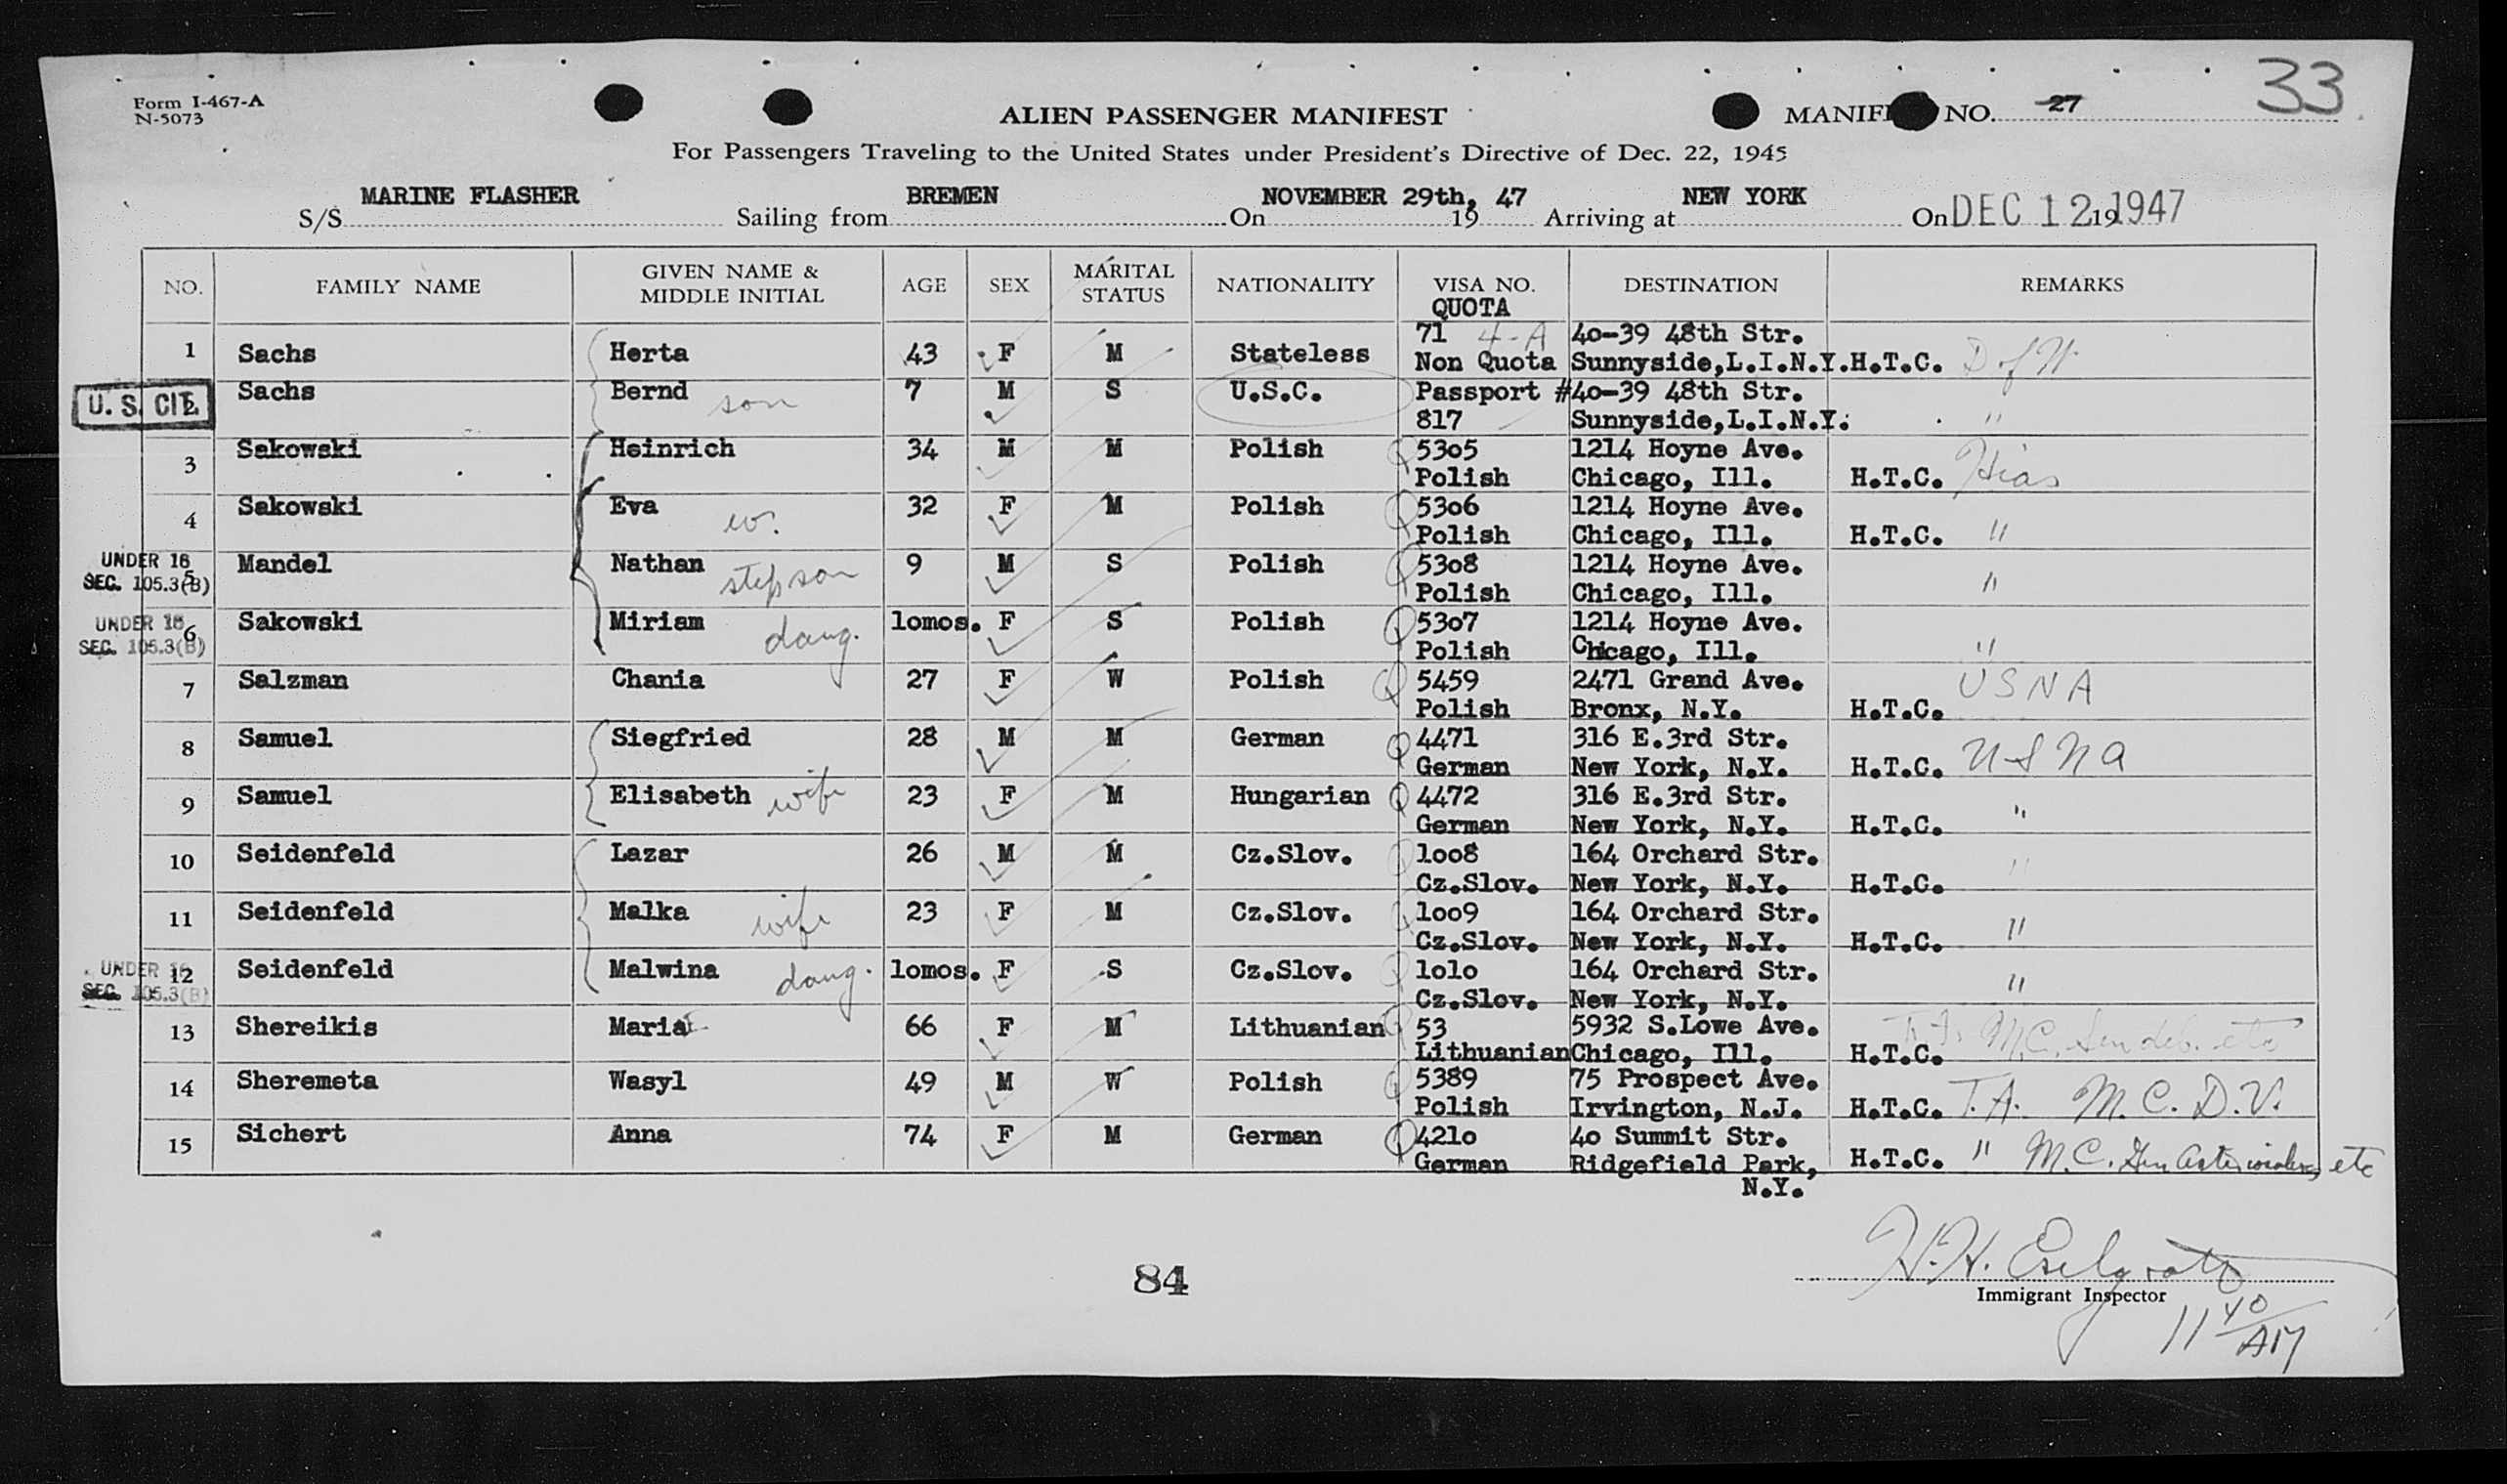 Form I-467-A
N-5073
33
ALIEN PASSENGER MANIFEST
MANIF NO. 27
For Passengers Traveling to the United States under President's Directive of Dec. 22, 1945
S/S MARINE FLASHER Sailing from BREMEN On NOVEMBER 29th, 1947 Arriving at NEW YORK On DEC 12 19 1947
NO. FAMILY NAME GIVEN NAME & MIDDLE INITIAL AGE SEX MARITAL STATUS NATIONALITY VISA NO. QUOTA DESTINATION REMARKS
71 4-A 40-39 48th Str.
1 Sachs Herta 43 F M Stateless Non Quota Sunnyside,L.I.N.Y. H.T.C.
U. S. CIT. 2 Sachs Bernd son 7 M S U.S.C. Passport # 40-39 48th Str.
817 Sunnyside,L.I.N.Y. "
3 Sakowski Heinrich 34 M M Polish 5305 1214 Hoyne Ave.
Polish Chicago, Ill. H.T.C. Hias
4 Sakowski Eva w. 32 F M Polish 5306 1214 Hoyne Ave.
Polish Chicago, Ill. H.T.C. "
UNDER 16 Mandel Nathan stepson 9 M S Polish 5308 1214 Hoyne Ave.
SEC. 105.3(B) 5 Polish Chicago, Ill. "
UNDER 16 6 Sakowski Miriam daug. 1omos. F S Polish 5307 1214 Hoyne Ave.
SEC. 105.3(B) Polish Chicago, Ill. "
7 Salzman Chania 27 F W Polish 5459 2471 Grand Ave. USNA
Polish Bronx, N.Y. H.T.C.
8 Samuel Siegfried 28 M M German 4471 316 E.3rd Str.
German New York, N.Y. H.T.C. USNA
9 Samuel Elisabeth wife 23 F M Hungarian 4472 316 E.3rd Str.
German New York, N.Y. H.T.C. "
10 Seidenfeld Lazar 26 M M Cz.Slov. 1oo8 164 Orchard Str. "
Cz.Slov. New York, N.Y. H.T.C.
11 Seidenfeld Malka wife 23 F M Cz.Slov. 1oo9 164 Orchard Str.
Cz.Slov. New York, N.Y. H.T.C. "
UNDER 16 12 Seidenfeld Malwina daug. 1omos. F S Cz.Slov. 1o1o 164 Orchard Str.
SEC. 105.3(B) Cz.Slov. New York, N.Y. "
13 Shereikis Maria 66 F M Lithuanian 53 5932 S.Lowe Ave.
Lithuanian Chicago, Ill. H.T.C. M.C. etc
14 Sheremeta Wasyl 49 M W Polish 5389 75 Prospect Ave.
Polish Irvington, N.J. H.T.C. T.A. M.C. D.V.
15 Sichert Anna 74 F M German 421o 40 Summit Str.
German Ridgefield Park, H.T.C. " M.C. etc
N.Y.
84
Immigrant Inspector
11 40 AM